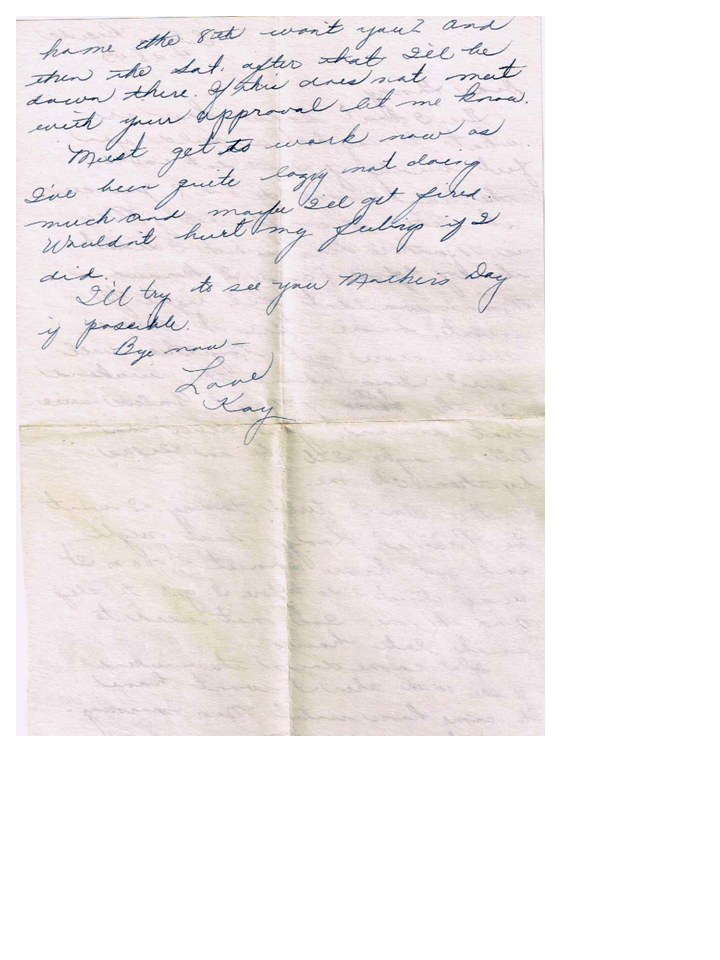 home the 8th won't you? And
then the Sat. after that I'll be
down there. If this does not meet
with your approval let me know.
Must get to work now as
I've been quite lazy not doing
much and maybe I'll get fired.
Wouldn't hurt my feelings if I
did.
I'll try to see you Mothers Day
if possible.
Bye now—
Love
Kay